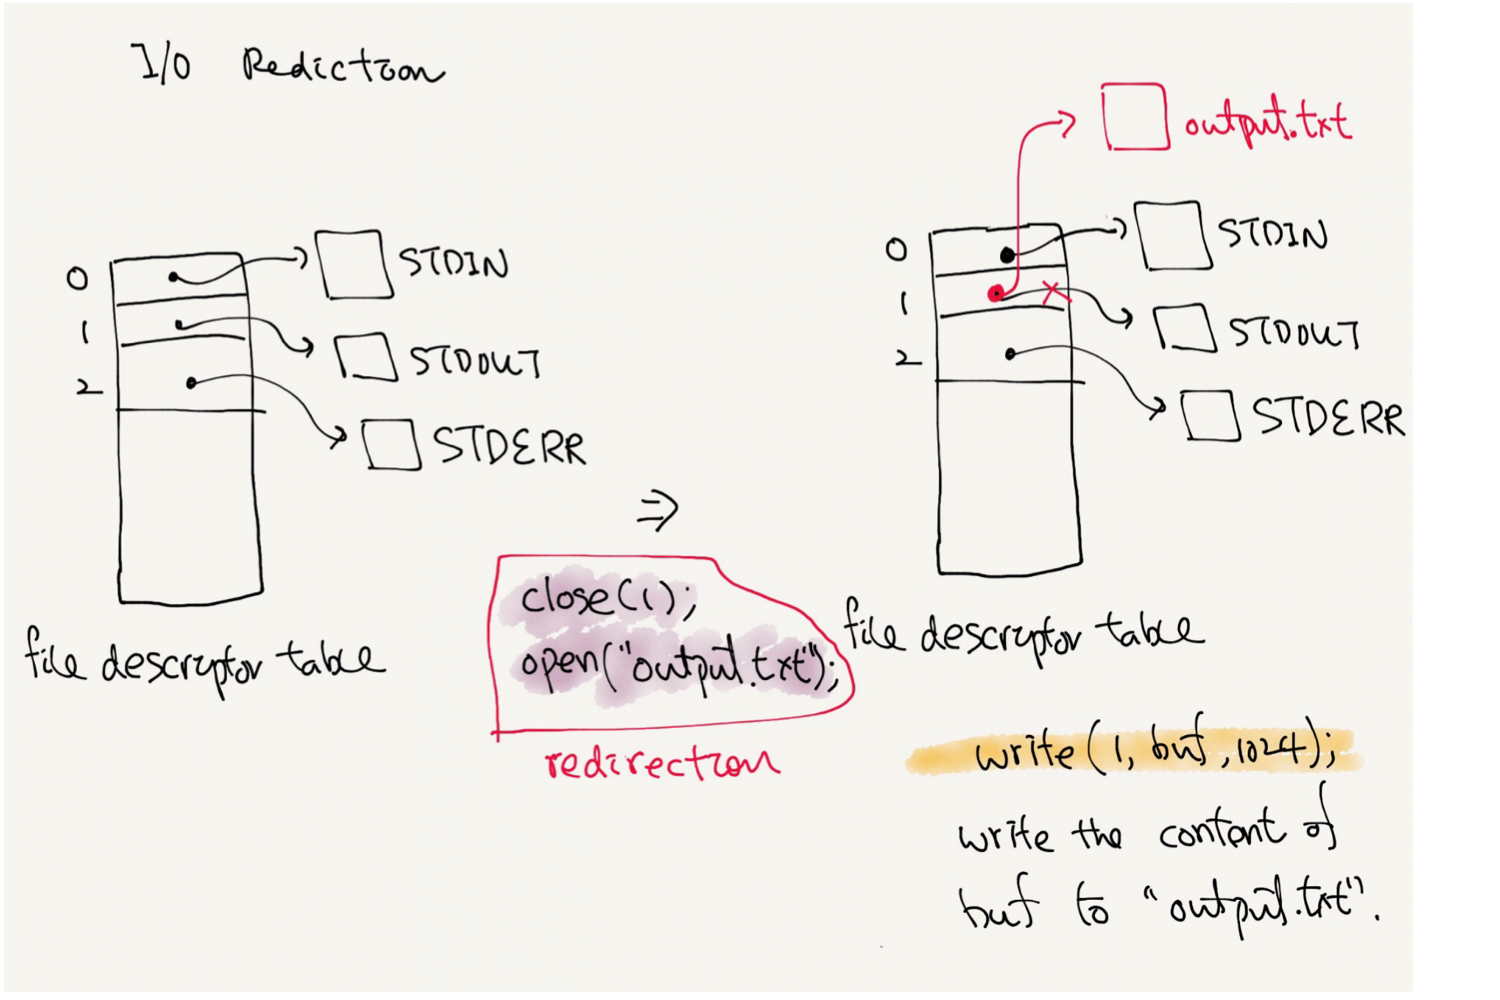 I/O Rediction
output.txt
0
STDIN
1
STDOUT
2
STDERR
file descriptor table
⇒
close(1);
open("output.txt");
redirection
0
STDIN
1
STDOUT
2
STDERR
file descriptor table
write(1, buf, 1024);
write the content of
buf to "output.txt".